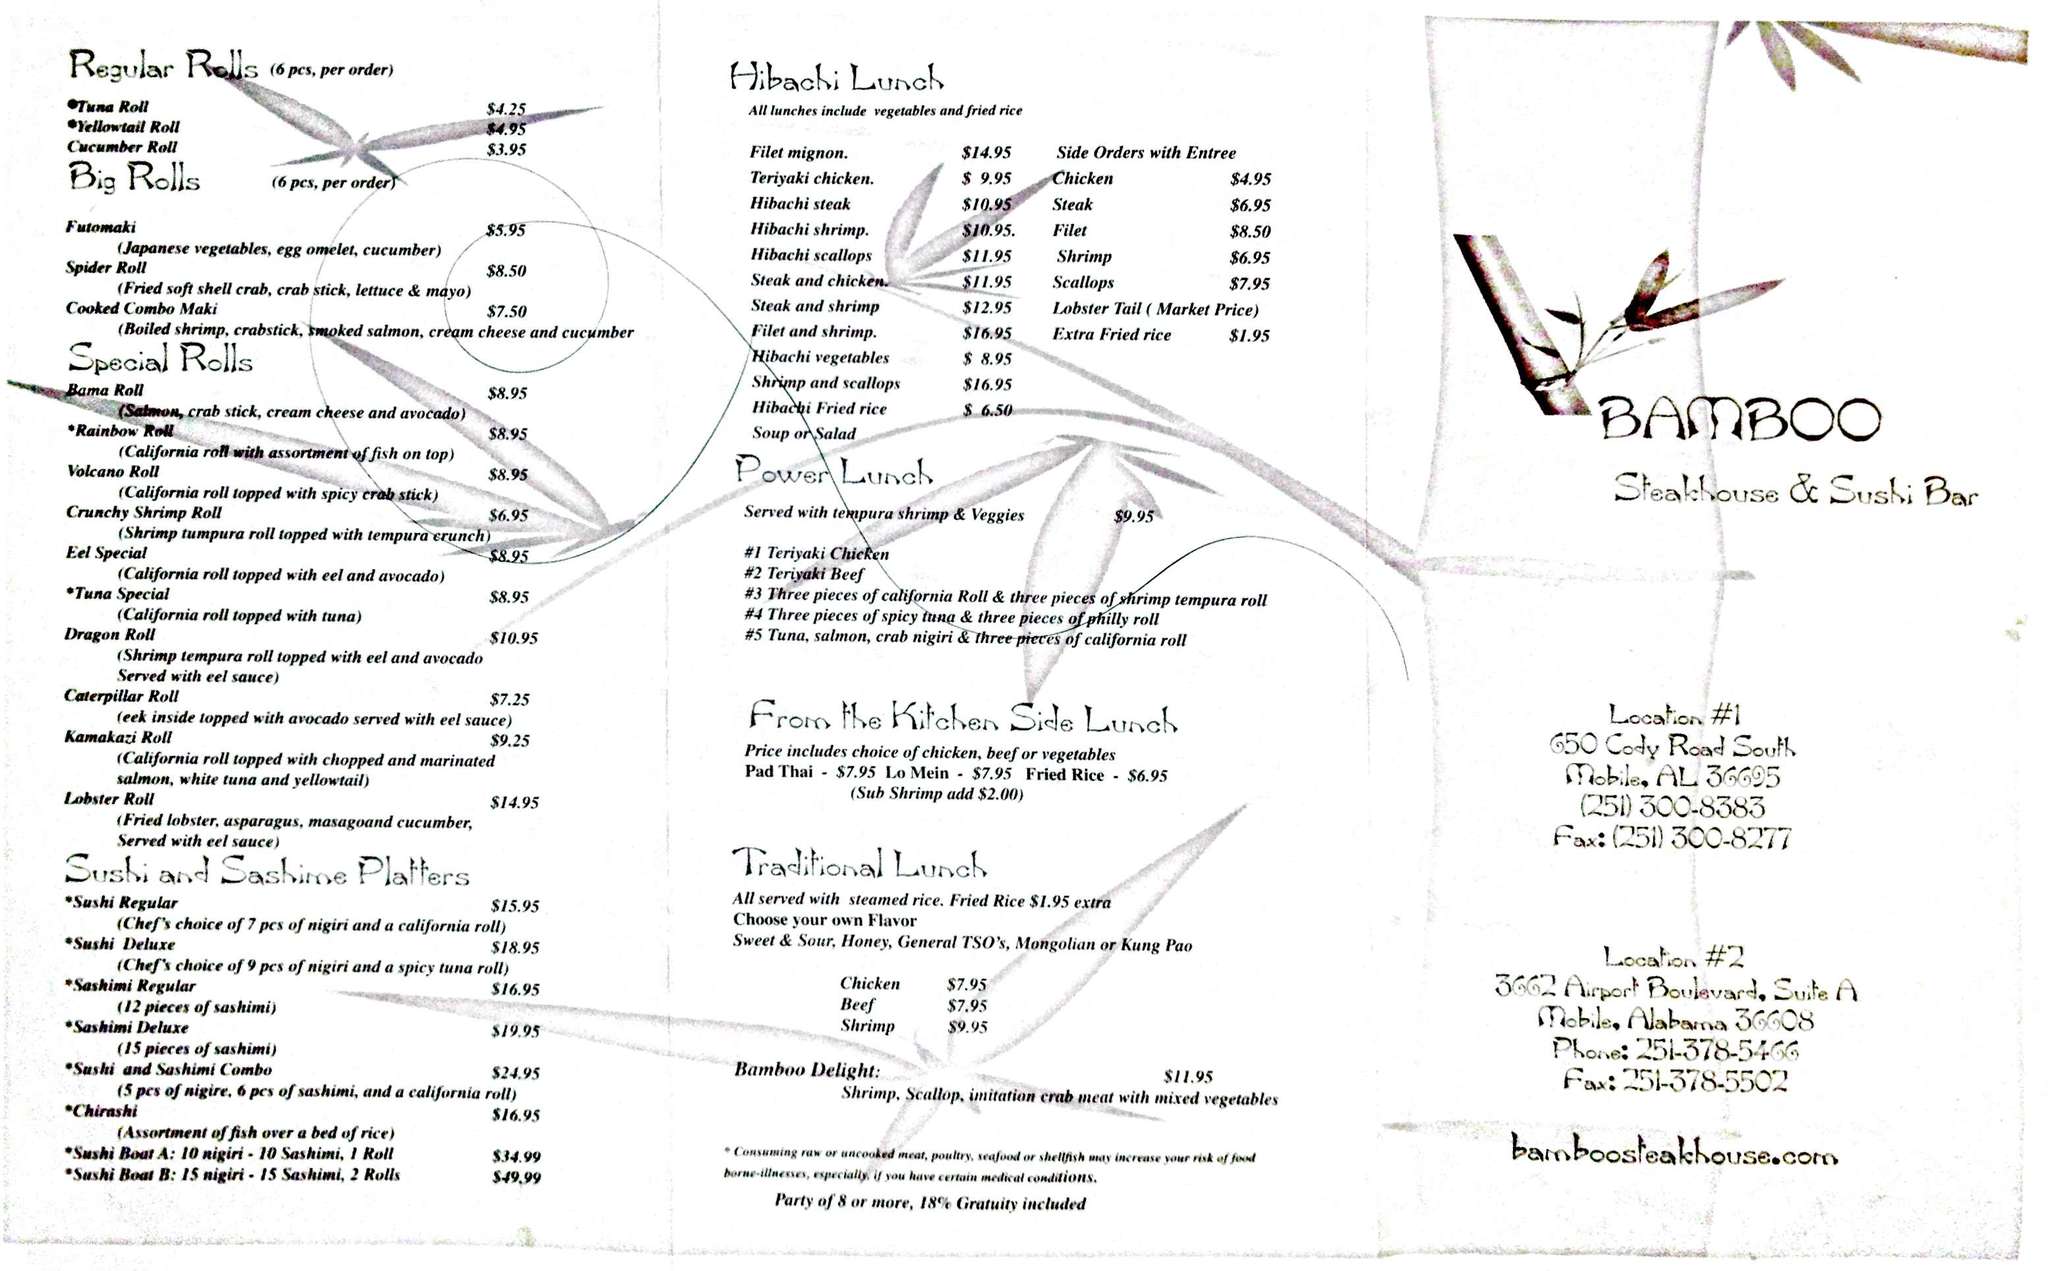 Regular Rolls (6 pcs, per order)
*Tuna Roll $4.25
*Yellowtail Roll $4.95
Cucumber Roll $3.95
Big Rolls (6 pcs, per order)
Futomaki $5.95
(Japanese vegetables, egg omelet, cucumber)
Spider Roll $8.50
(Fried soft shell crab, crab stick, lettuce & mayo)
Cooked Combo Maki $7.50
(Boiled shrimp, crabstick, smoked salmon, cream cheese and cucumber
Special Rolls
Bama Roll $8.95
(Salmon, crab stick, cream cheese and avocado)
*Rainbow Roll $8.95
(California roll with assortment of fish on top)
Volcano Roll $8.95
(California roll topped with spicy crab stick)
Crunchy Shrimp Roll $6.95
(Shrimp tumpura roll topped with tempura crunch)
Eel Special $8.95
(California roll topped with eel and avocado)
*Tuna Special $8.95
(California roll topped with tuna)
Dragon Roll $10.95
(Shrimp tempura roll topped with eel and avocado
Served with eel sauce)
Caterpillar Roll $7.25
(eek inside topped with avocado served with eel sauce)
Kamakazi Roll $9.25
(California roll topped with chopped and marinated
salmon, white tuna and yellowtail)
Lobster Roll $14.95
(Fried lobster, asparagus, masagoand cucumber,
Served with eel sauce)
Sushi and Sashime Platters
*Sushi Regular $15.95
(Chef's choice of 7 pcs of nigiri and a california roll)
*Sushi Deluxe $18.95
(Chef's choice of 9 pcs of nigiri and a spicy tuna roll)
*Sashimi Regular $16.95
(12 pieces of sashimi)
*Sashimi Deluxe $19.95
(15 pieces of sashimi)
*Sushi and Sashimi Combo $24.95
(5 pcs of nigire, 6 pcs of sashimi, and a california roll)
*Chirashi $16.95
(Assortment of fish over a bed of rice)
*Sushi Boat A: 10 nigiri - 10 Sashimi, 1 Roll $34.99
*Sushi Boat B: 15 nigiri - 15 Sashimi, 2 Rolls $49.99
Hibachi Lunch
All lunches include vegetables and fried rice
Filet mignon. $14.95
Teriyaki chicken. $ 9.95
Hibachi steak $10.95
Hibachi shrimp. $10.95.
Hibachi scallops $11.95
Steak and chicken. $11.95
Steak and shrimp $12.95
Filet and shrimp. $16.95
Hibachi vegetables $ 8.95
Shrimp and scallops $16.95
Hibachi Fried rice $ 6.50
Soup or Salad
Side Orders with Entree
Chicken $4.95
Steak $6.95
Filet $8.50
Shrimp $6.95
Scallops $7.95
Lobster Tail ( Market Price)
Extra Fried rice $1.95
Power Lunch
Served with tempura shrimp & Veggies $9.95
#1 Teriyaki Chicken
#2 Teriyaki Beef
#3 Three pieces of california Roll & three pieces of shrimp tempura roll
#4 Three pieces of spicy tuna & three pieces of philly roll
#5 Tuna, salmon, crab nigiri & three pieces of california roll
From the Kitchen Side Lunch
Price includes choice of chicken, beef or vegetables
Pad Thai - $7.95 Lo Mein - $7.95 Fried Rice - $6.95
(Sub Shrimp add $2.00)
Traditional Lunch
All served with steamed rice. Fried Rice $1.95 extra
Choose your own Flavor
Sweet & Sour, Honey, General TSO's, Mongolian or Kung Pao
Chicken $7.95
Beef $7.95
Shrimp $9.95
Bamboo Delight: $11.95
Shrimp, Scallop, imitation crab meat with mixed vegetables
* Consuming raw or uncooked meat, poultry, seafood or shellfish may increase your risk of food
borne-illnesses, especially, if you have certain medical conditions.
Party of 8 or more, 18% Gratuity included
BAMBOO
Steakhouse & Sushi Bar
Location #1
650 Cody Road South
Mobile, AL 36695
(251) 300-8383
Fax: (251) 300-8277
Location #2
3662 Airport Boulevard, Suite A
Mobile, Alabama 36608
Phone: 251-378-5466
Fax: 251-378-5502
bamboosteakhouse.com